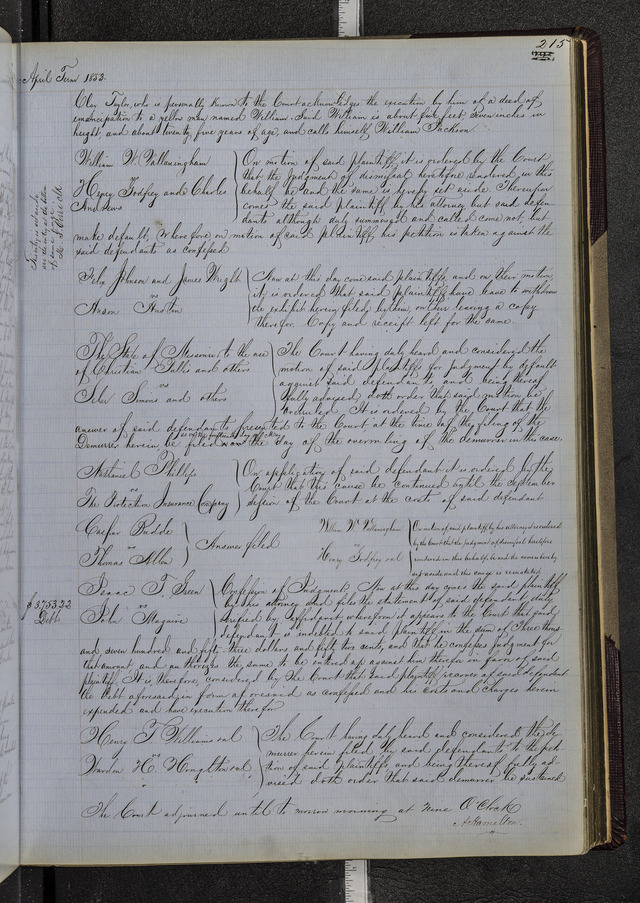 215
April Term 1853.
Oley Taylor, who is personally known to the Court acknowledges the execution by him of a deed of
emancipation to a yellow man named William. Said William is about five feet seven inches in
height, and about twenty five years of age, and calls himself William Jackson.
William W. Vallensingham
vs
Henry Godfrey and Charles
Andrews
On motion of said plaintiff, it is ordered by the Court
that the judgment of dismissal heretofore rendered in this
behalf be and the same is hereby set aside. Thereupon
comes the said plaintiff by his attorney but said defen-
dants although duly summoned and called come not, but
make default, Wherefore on motion of said plaintiff, his petition is taken against the
said defendants as confessed
Felix Johnson and James Wright
vs
Anson Huston
Now at this day come said plaintiffs, and on their motion
it is ordered that said plaintiffs have leave to withdraw
the exhibit herein filed by them, on their leaving a copy
therefor. Copy and receipt left for the same.
The State of Missouri to the use
of Christian and others
vs
Simons and others
The Court having duly heard and considered the
motion of said plaintiffs for judgment by default
against said defendants, and being thereof
fully advised, doth order that said motion be
overruled. It is ordered by the Court that the
answer of said defendants presented to the Court at the time of the filing of the
Demurrer herein be filed now the day of the overruling of the demurrer in this case.
Nathaniel Phillips
vs
The Protection Insurance Company
On application of said defendant it is ordered by the
Court that this cause be continued until the September
session of the Court at the cost of said defendant
Caspar Budde
vs
Thomas Allen
Answer filed
William W. Vallensingham
vs
Henry Godfrey et al
On motion of said plaintiff by his attorney it is ordered
by the Court that the judgment of dismissal heretofore
rendered in this behalf be and the same is hereby
set aside and this cause is reinstated
$3,753.22
Debt
Isaac T. Green
vs
John Maguire
Confession of Judgment, Now at this day comes the said plaintiff
by his attorney and files the statement of said defendant, duly
verified by affidavit, wherefrom it appears to the Court that said
defendant is indebted to said plaintiff in the sum of Three thous-
and, seven hundred and fifty three dollars and fifty two cents, and that he confesses judgment for
that amount and authorizes the same to be entered up against him therefor in favor of said
plaintiff. It is, therefore, considered by the Court that said plaintiff recover of said defendant
the debt aforesaid in form aforesaid as confessed and his costs and charges herein
expended and have execution therefor
Henry T. Williams et al
vs
Warden H. et al
The Court having duly heard and considered the de-
murrer herein filed by said defendants to the peti-
tion of said plaintiffs, and being thereof fully ad-
vised doth order that said demurrer be sustained
The Court adjourned until to morrow morning at nine O'Clock
A. Hamilton.